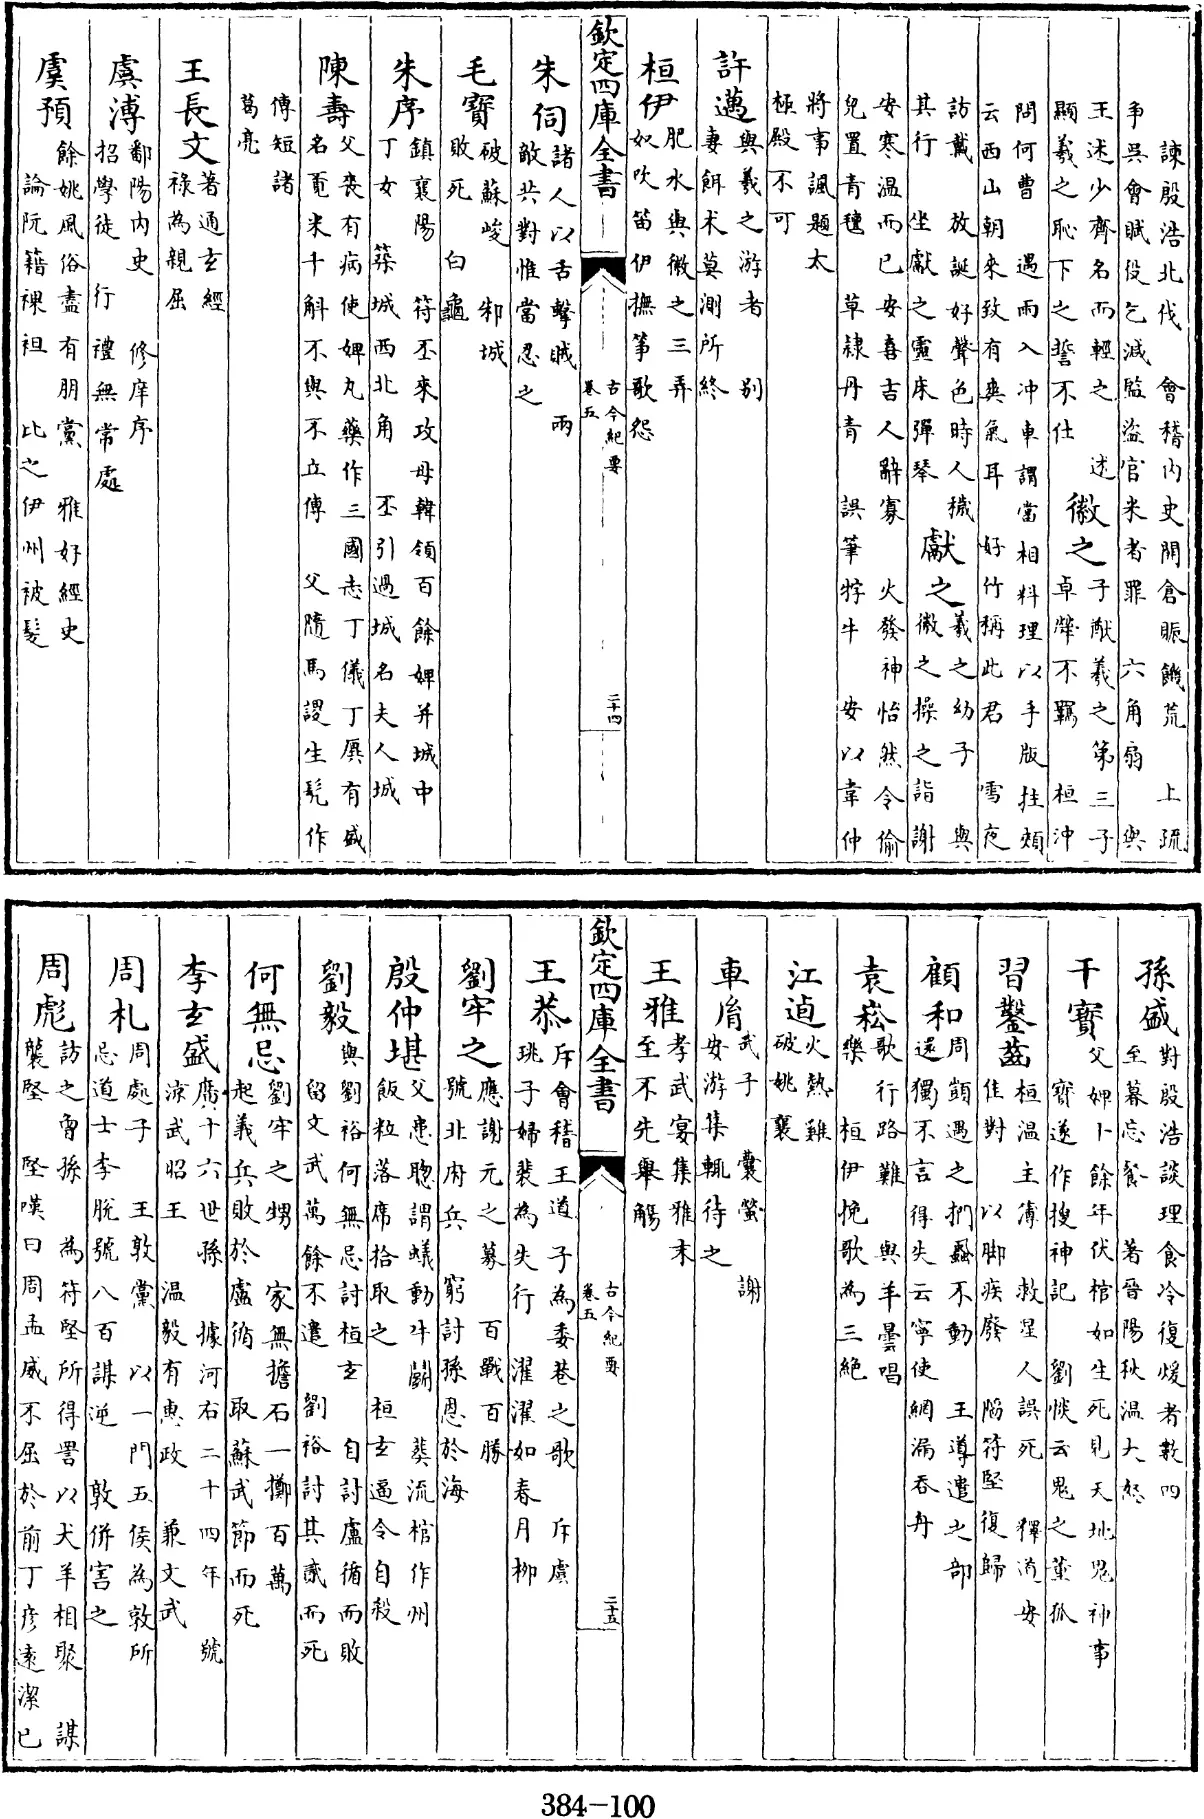 諫殷浩北伐　會稽內史開倉賑饑荒　上疏
爭吳會賦役乞減監盜官米者罪　六角扇　與
王述少齊名而輕之　述
顯羲之恥下之誓不仕
徽之
子猷羲之第三子
卓犖不羈　桓沖
問何曹　遇雨入沖車謂當相料理以手版拄頰
云西山朝來致有爽氣耳　好竹稱此君　雪夜
訪戴　放誕好聲色時人穢
其行　坐獻之靈床彈琴
獻之
羲之幼子　與
徽之操之詣謝
安寒温而已安喜吉人辭寡　火發神怡然令偷
兒置青氊　草隸丹青　誤筆牸牛　安以韋仲
將事諷題太
極殿不可
許邁
與羲之游者　別
妻餌术莫測所終
桓伊
肥水與徽之三弄
奴吹笛伊撫箏歌怨
欽定四庫全書
古今紀要
卷五
二十四
朱伺
諸人以舌擊賊　兩
敵共對惟當忍之
毛寶
破蘇峻　邾城
敗死　白龜
朱序
鎮襄陽　符丕來攻母韓領百餘婢并城中
丁女　築城西北角　丕引過城名夫人城
陳壽
父喪有病使婢丸藥作三國志丁儀丁廙有盛
名覓米十斛不與不立傳　父隨馬謖坐髠作
傳短諸
葛亮
王長文
著通玄經
祿為親屈
虞溥
鄱陽內史　修庠序
招學徒　行禮無常處
虞預
餘姚風俗盡有朋黨　雅好經史
論阮籍裸袒　比之伊州被髮
孫盛
對殷浩談理食冷復煖者數四
至暮忘餐　著晉陽秋温大怒
干寶
父婢卜餘年伏棺如生死見天地鬼神事
寶遂作搜神記　劉惔云鬼之董狐
習鑿齒
桓温主簿　救星人誤死　釋道安
隹對　以脚疾廢　陷符堅復歸
顧和
周顗遇之捫蝨不動　王導遣之部
還獨不言得失云寧使網漏吞舟
袁崧
歌行路難　與羊曇唱
樂　桓伊挽歌為三絕
江逌
火熱雞
破姚襄
車胤
武子　囊螢　謝
安游集輒待之
王雅
孝武宴集雅未
至不先舉觴
欽定四庫全書
古今紀要
卷五
二十五
王恭
斥會稽王道子為委巷之歌　斥虞
珧子婦裴為失行　濯濯如春月柳
劉牢之
應謝元之募　百戰百勝
號北府兵　窮討孫恩於海
殷仲堪
父患聰謂蟻動牛鬭　葬流棺作州
飯粒落席拾取之　桓玄逼令自殺
劉毅
與劉裕何無忌討桓玄　自討盧循而敗
留文武萬餘不遣　劉裕討其貳而死
何無忌
劉牢之甥　家無擔石一擲百萬
起義兵敗於盧循　取蘇武節而死
李玄盛
廣十六世孫　據河右二十四年　號
涼武昭王　温毅有惠政　兼文武
周札
周處子　王敦黨　以一門五侯為敦所
忌道士李脫號八百謀逆　敦併害之
周虓
訪之曾孫　為符堅所得詈以犬羊相聚　謀
襲堅　堅嘆曰周孟威不屈於前丁彥遠潔已
384-100